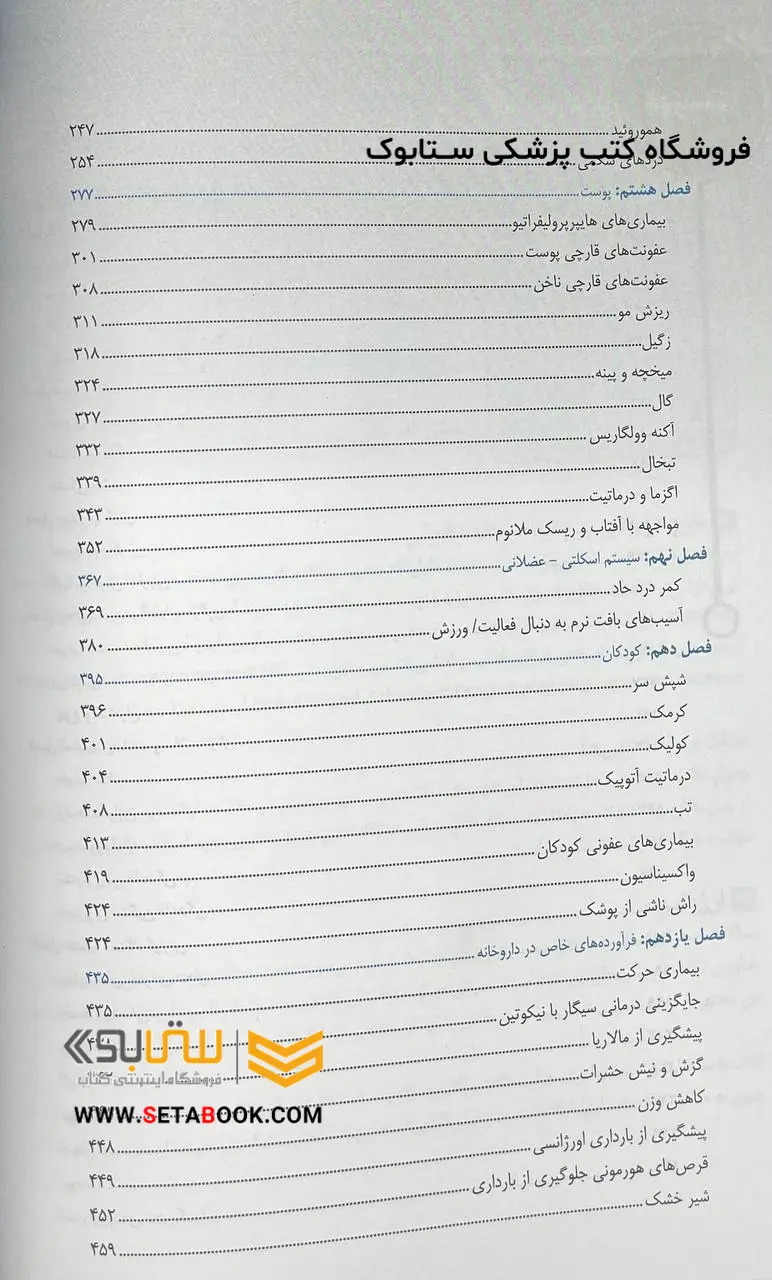 هموروئید ۲۴۷
فروشگاه کتب پزشکی ستابوک
دردهای شکمی ۲۵۴
فصل هشتم: پوست ۲۷۷
بیماری‌های هایپرپرولیفراتیو ۲۷۹
عفونت‌های قارچی پوست ۳۰۱
عفونت‌های قارچی ناخن ۳۰۸
ریزش مو ۳۱۱
زگیل ۳۱۸
میخچه و پینه ۳۲۴
گال ۳۲۷
آکنه وولگاریس ۳۳۲
تبخال ۳۳۹
اگزما و درماتیت ۳۴۳
مواجهه با آفتاب و ریسک ملانوم ۳۵۲
فصل نهم: سیستم اسکلتی - عضلانی ۳۶۷
کمر درد حاد ۳۶۹
آسیب‌های بافت نرم به دنبال فعالیت/ ورزش ۳۸۰
فصل دهم: کودکان ۳۹۵
شپش سر ۳۹۶
کرمک ۴۰۱
کولیک ۴۰۴
درماتیت آتوپیک ۴۰۸
تب ۴۱۳
بیماری‌های عفونی کودکان ۴۱۹
واکسیناسیون ۴۲۴
راش ناشی از پوشک ۴۲۴
فصل یازدهم: فرآورده‌های خاص در داروخانه ۴۳۵
بیماری حرکت ۴۳۵
جایگزینی درمانی سیگار با نیکوتین
پیشگیری از مالاریا
گزش و نیش حشرات
کاهش وزن ۴۴۸
پیشگیری از بارداری اورژانسی ۴۴۹
قرص‌های هورمونی جلوگیری از بارداری ۴۵۲
شیر خشک ۴۵۹
ستابوک
فروشگاه اینترنتی کتاب
WWW.SETABOOK.COM